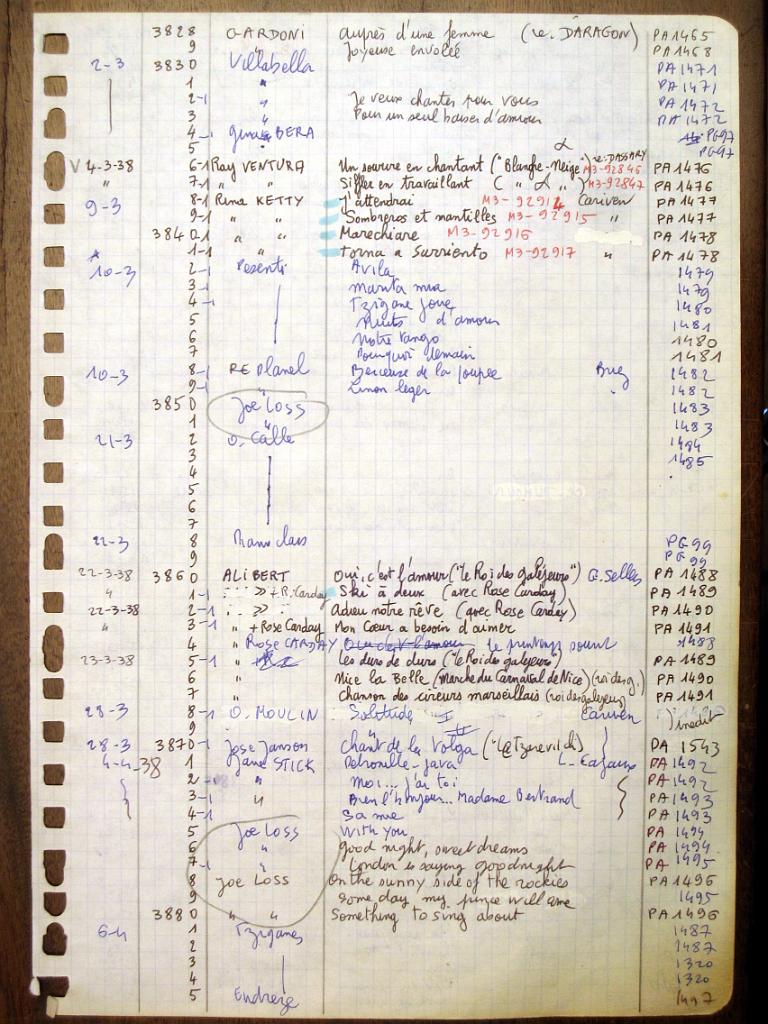 3828 GARDONI auprès d'une femme (re. DARAGON) PA 1465
9 " Joyeuse envolée PA 1468
2-3 3830 Villabella PA 1471
1 " PA 1471
2-1 " Je veux chanter pour vous PA 1472
3 " Pour un seul baiser d'amour PA 1472
4-1 BERA PG 97
5 PG 97
V 4-3-38 6-1 Ray VENTURA Un sourire en chantant ("Blanche-Neige") re: DASSARY M3-92846 PA 1476
" 7-1 " " Siffler en travaillant ( " " ) M3-92847 PA 1476
9-3 8-1 Rina KETTY J'attendrai M3-92914 Cariven PA 1477
9-1 " " Sombreros et mantilles M3-92915 " PA 1477
3840-1 " " Marechiare M3-92916 PA 1478
1-1 " " Torna a Surriento M3-92917 " PA 1478
10-3 2-1 Pesenti Avila 1479
3-1 mia 1479
4-1 Tzigane joue 1480
5 Nuits d'amour 1481
6 Notre tango 1480
7 Pourquoi demain 1481
10-3 8-1 RE Planel Berceuse de la poupée 1482
9-1 " leger 1482
3850 Joe LOSS 1483
1 " 1483
21-3 2 O. Calle 1484
3 1485
4
5
6
7
22-3 8 PG 99
9 PG 99
22-3-38 3860 ALIBERT Oui, c'est l'amour ("le Roi des galéjeurs") G. Sellers PA 1488
" 1-1 " + R. Carday Ski à deux (avec Rose Carday) PA 1489
22-3-38 2-1 " Adieu notre rêve (avec Rose Carday) PA 1490
" 3-1 " + Rose Carday Mon Cœur a besoin d'aimer PA 1491
4 " Rose CARDAY Oui c'est l'amour le printemps sourit 1488
23-3-38 5-1 " Les durs de durs ("le Roi des galejeurs) PA 1489
6 " Nice la Belle (Marche du Carnaval de Nice) (roi des g.) PA 1490
7 " chanson des cireurs marseillais (roi des galejeurs) PA 1491
28-3 8-1 O. MOULIN Solitude I Cariven inédit
9 " II
28-3 3870-1 Jose Janson chant de la Volga ("Le Tzarevitch") PA 1543
4-4-38 1 Jane STICK Petronille-java PA 1492
2-1 " Moi... j'ai toi PA 1492
3-1 " Bien l'bonjour... Madame Bertrand PA 1493
4-1 Sa mie PA 1493
5 Joe LOSS With you PA 1494
6 " good night, sweet dreams PA 1494
7-1 " London is saying goodnight PA 1495
8 Joe LOSS On the sunny side of the rockies PA 1496
9 some day my prince will come 1495
3880 " " Something to sing about PA 1496
6-4 1 Tziganes 1487
2 1487
3 1320
4 1320
5 Endreze 1497